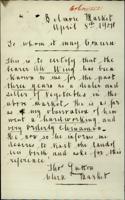 Belmore Market
April 8th
To whom it may Concern
This to certify that the
bearer Ah King has been
known to me for the past
three years as a dealer and
seller of vegetables in the
above market. He is as far
as my observation of him
went a hardworking and
very orderly chinaman
He now as he informs me
desires to visit the land of
his birth and asks for this
reference.
Thos
Clerk Market